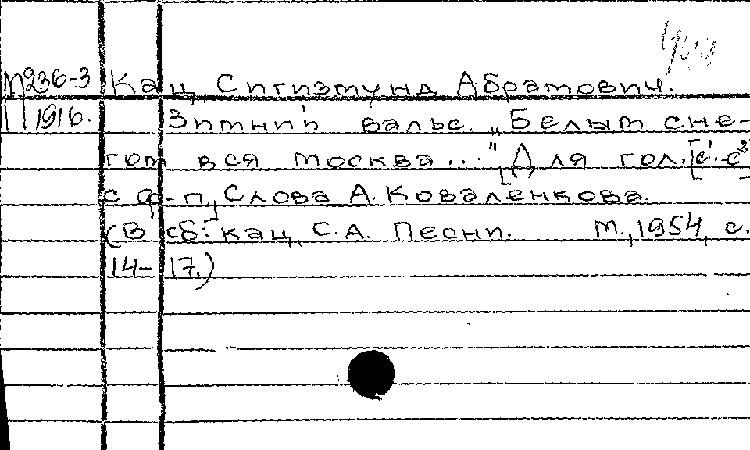 П236-3 Кац, Сигизмунд Абрамович.
1916. Зимний вальс. „Белым сне-
гом вся Москва..." [Для гол. [c¹-e²]
с ф-п.] Слова А. Коваленкова.
(В сб: Кац, С.А. Песни. М., 1954, с.
14-17.)